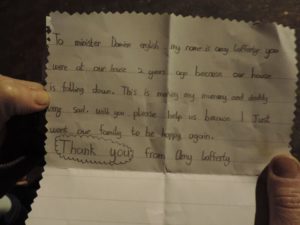 To minister Damien english my name is amy Lafferty you
were at our house 2 years ago because our house
is falling down. This is making my mummy and daddy
very sad. will you please help us because I Just
want our family to be happy again.
Thank you from Amy Lafferty